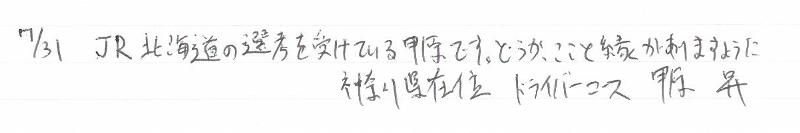 7/31 JR北海道の選考を受けている甲原です。どうか、ここと縁がありますように
神奈川県在住 ドライバーコース 甲原 昇